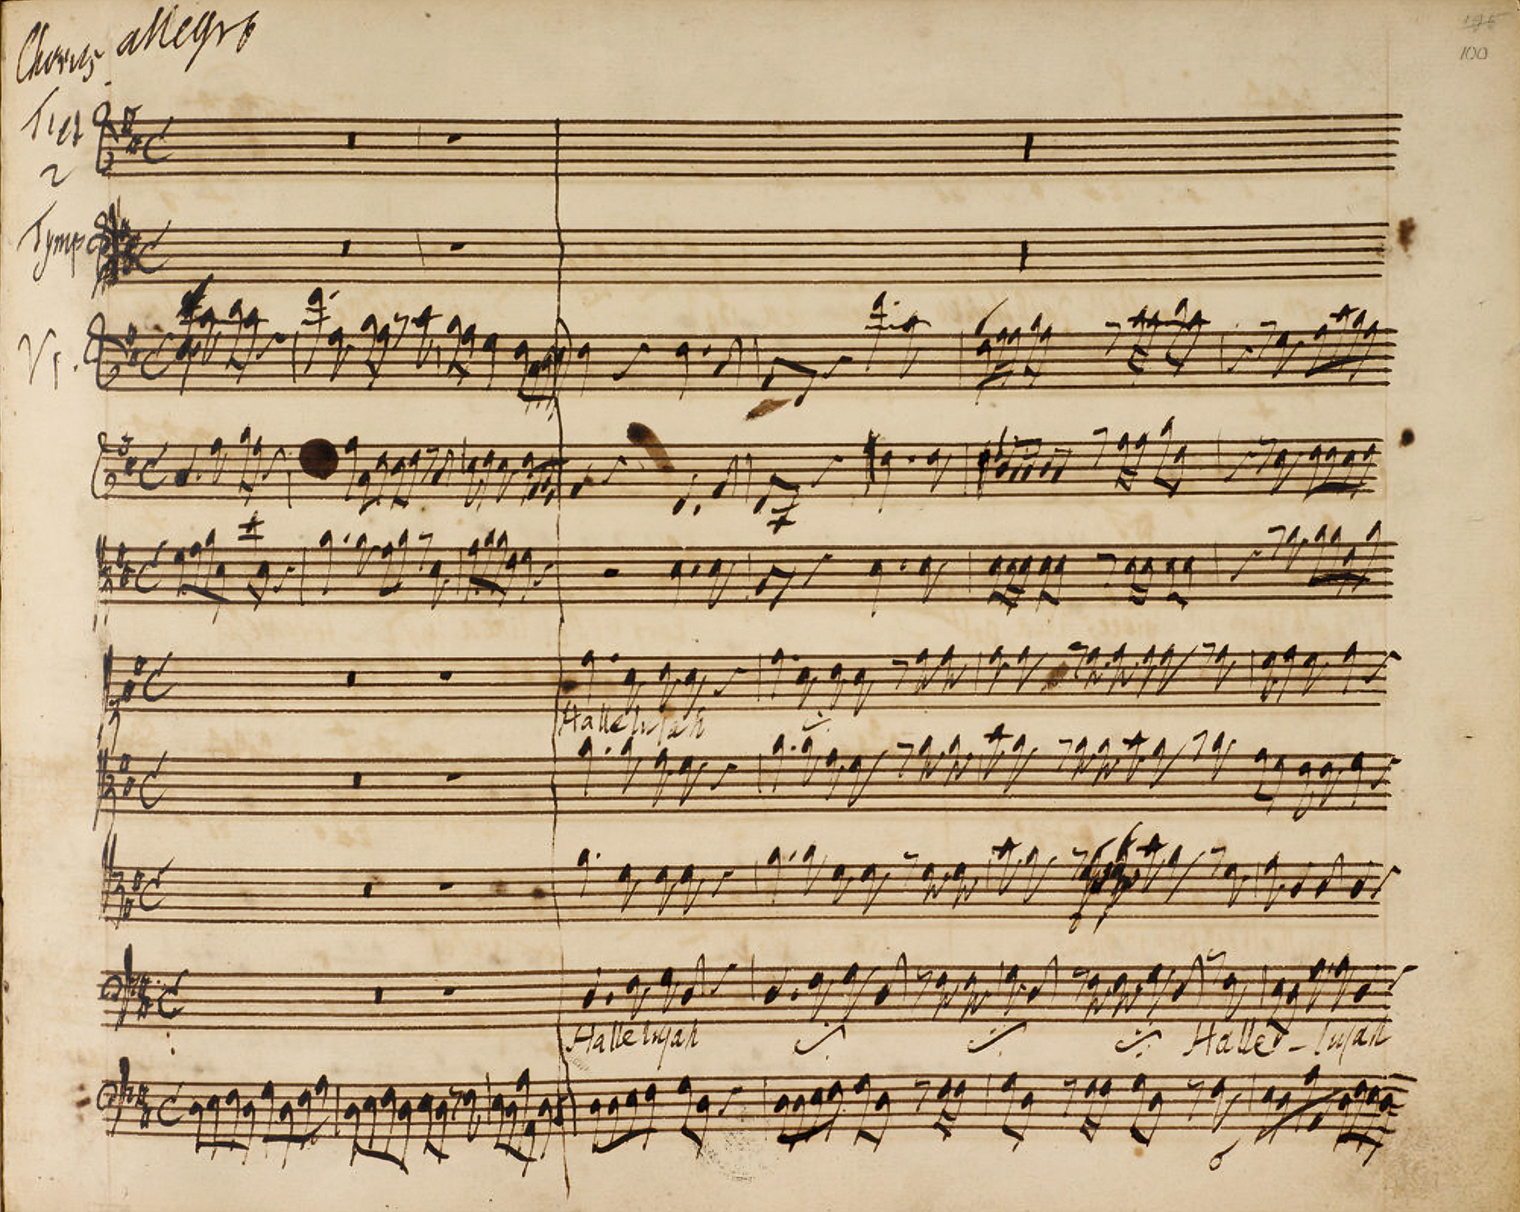 Chorus allegro
100
2
Tymp
V 1.
Hallelujah
Hallelujah Halle-lujah
6